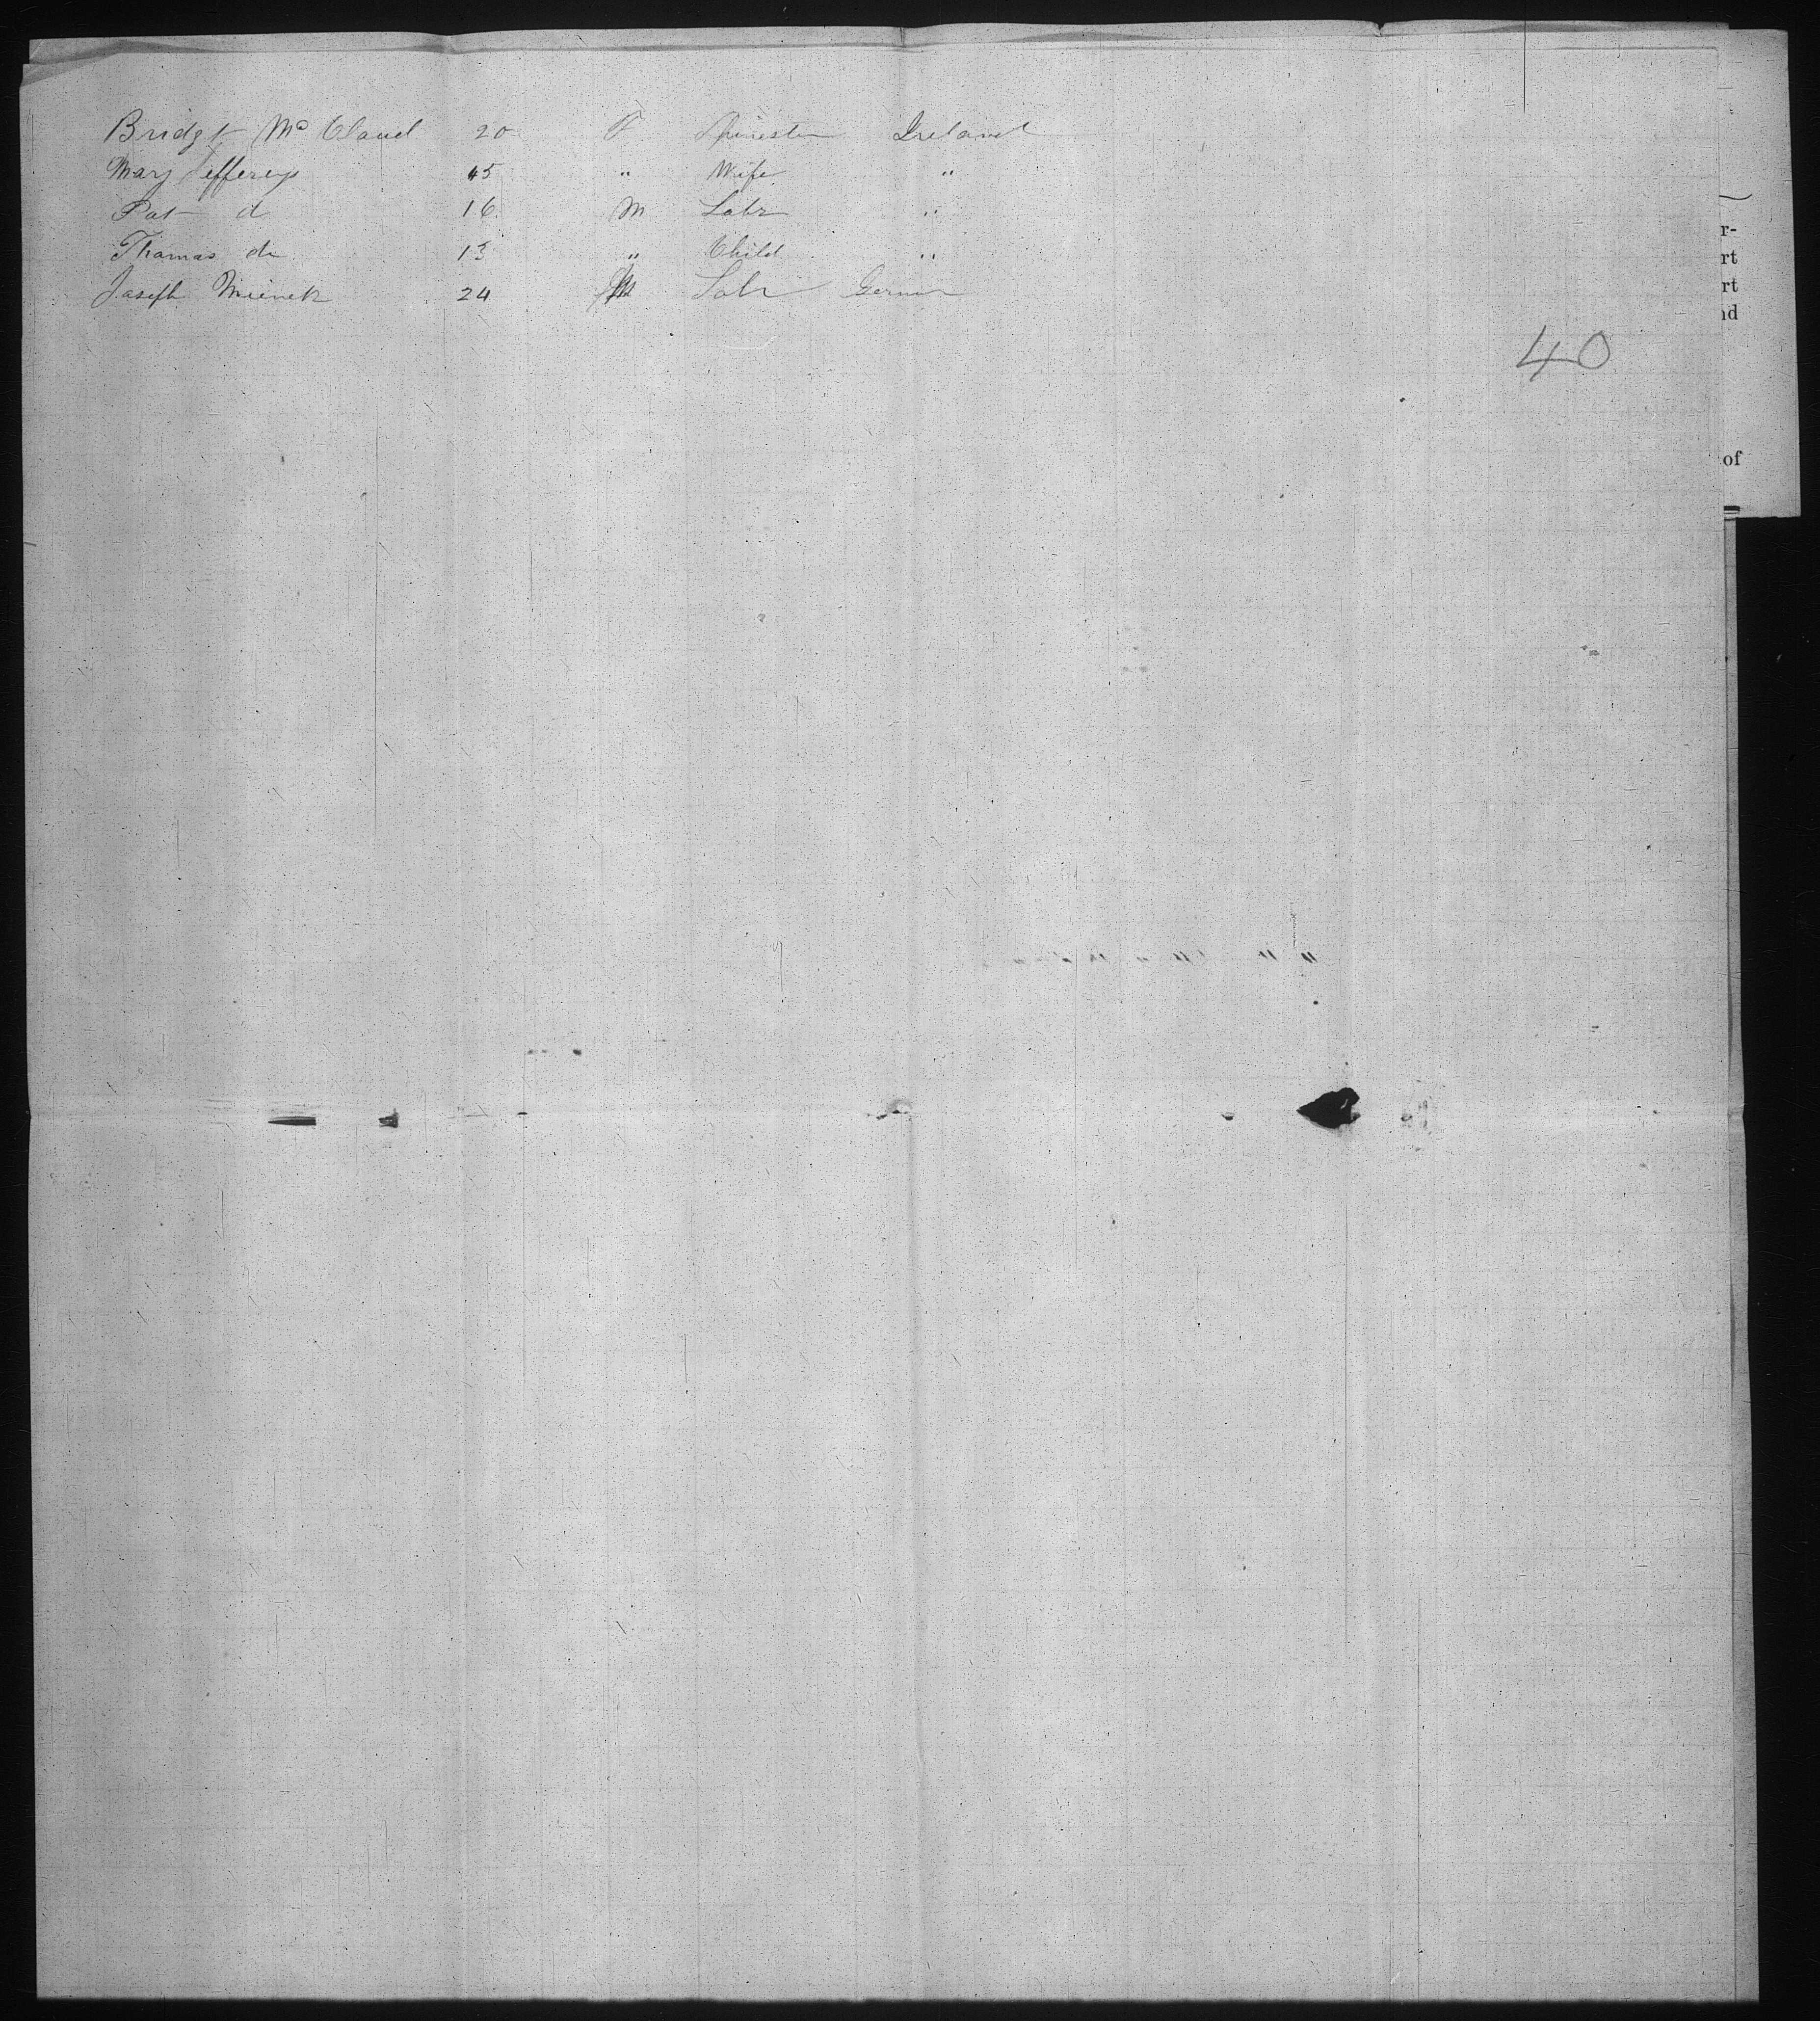 Bridget Mc Cloud 20 F Spinster Ireland
Mary Jefferys 45 " Wife "
Pat d 16 M Labr "
Thomas do 13 " Child "
Joseph 24 M Labr German
40
r-
rt
rt
nd
of